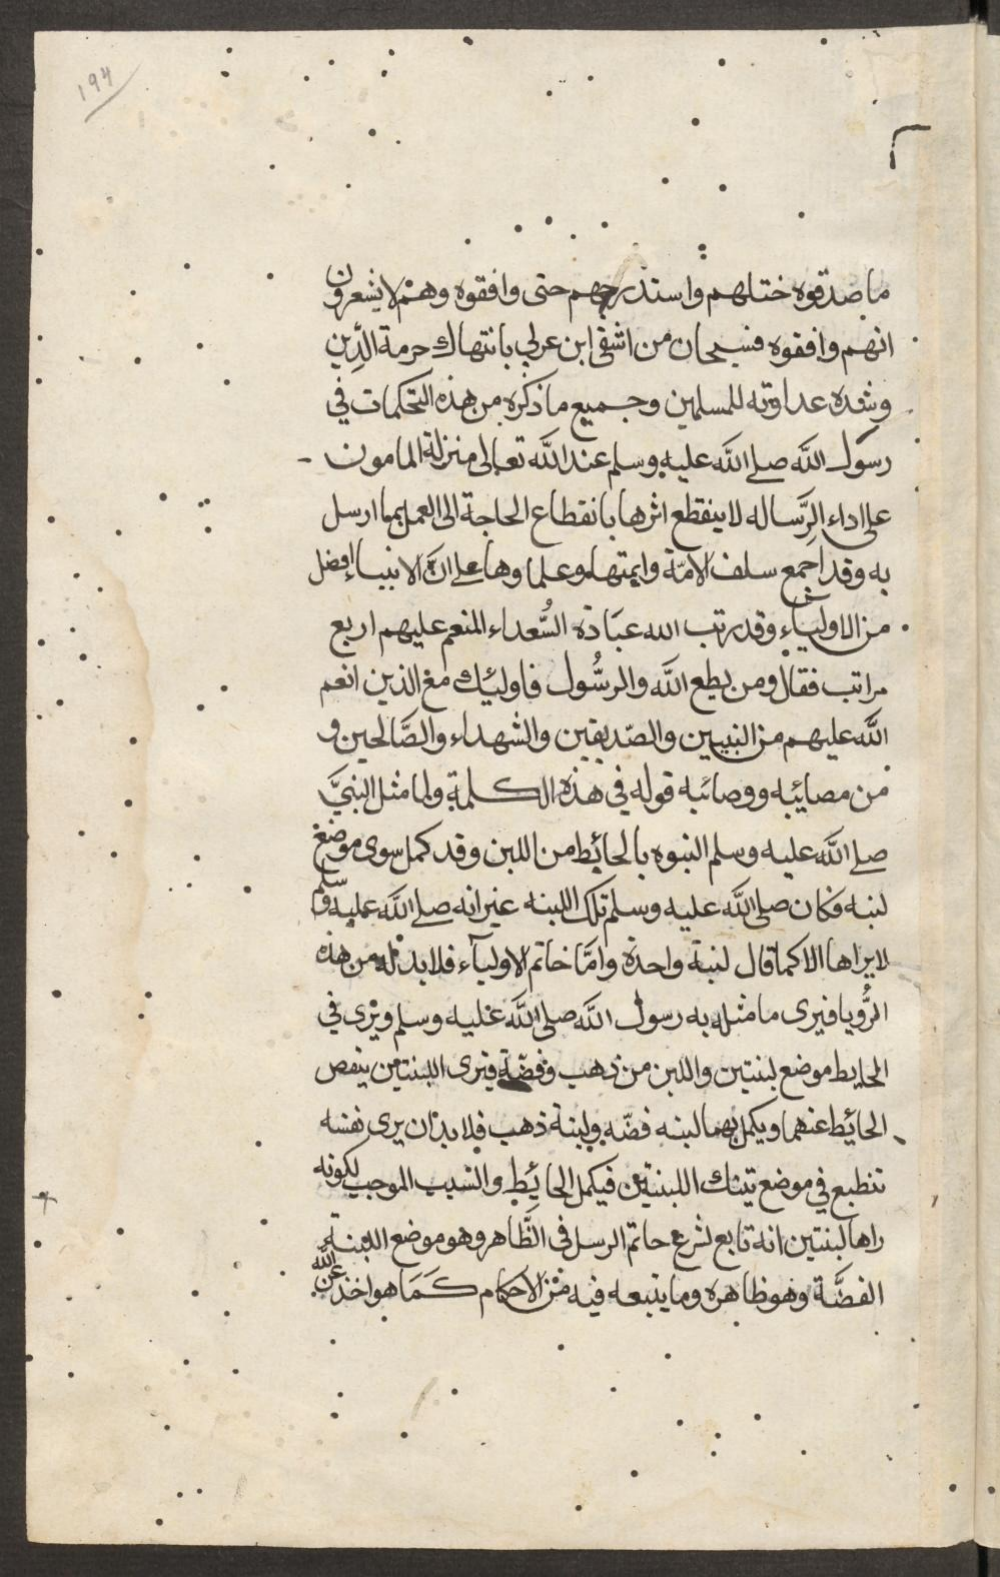 ١٩٤
ما صدقوه ختلهم واستدرجهم حتى وافقوه وهم لا يشعرون
انهم وافقوه فسبحان من اشقى ابن عربي بانتهاك حرمة الدِّين
وشده عداوته للمسلمين وجميع ما ذكره من هذه التحكمات في
رسول الله صلى الله عليه وسلم عند الله تعالى منزلة المامون
على اداء الرَّساله لا ينقطع اثرها بانقطاع الحاجة الى العمل بما ارسل
به وقد اجمع سلف الامّة وايمتها وعلماوها على انّ الانبياء افضل
من الاولياء وقد رتب الله عبَادة السُّعداء المنعم عليهم اربع
مراتب فقال ومن يطع الله والرسُّول فاوليك مع الذين انعم
الله عليهم من النبيين والصّديقين والشهداء والصَّالحين و
من مصائبه ووصائبه قوله في هذه الكلمة ولما مثل النبيَّ
صلى الله عليه وسلم النبوه بالحائط من اللبن وقد كمل سوى موضع
لبنه فكان صلى الله عليه وسلم تلك اللبنه غير انه صلى الله عليه وسلم
لا يراها الا كما قال لبنة واحدة وامَّا خاتم الاوليآء فلا بد له من هذه
الرُّويا فيرى ما مثله به رسول الله صلى الله عليه وسلم ويرى في
الحايط موضع لبنتين واللبن من ذهب وفضّة فيرى اللبنتين ينقص
الحائيط عنهما ويكمل بهما لبنه فضّه ولبنة ذهب فلا بد ان يرى نفسه
تنطبع في موضع تينك اللبنتين فيكمل الحائيط والسبب الموجب لكونه
راها لبنتين انه تابع لشرع خاتم الرسل في الظَّاهر وهو موضع اللبنة
الفضَّة وهو ظاهره وما يتبعه فيه من الاحكام كَمَا هو اخذ عن الله